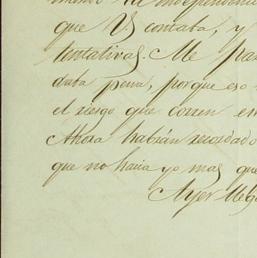 que V. contaba, y
tentativas. Me pa
daba pena, porque eso
el riesgo que corren en
Ahora habrán recordado
que no hacia yo mas que
Ayer lleg